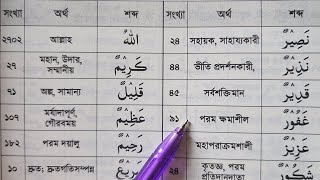 সংখ্যা অর্থ শব্দ সংখ্যা অর্থ শব্দ
২৭০২ আল্লাহ اللهُ ২৪ সহায়ক, সাহায্যকারী نَصِيْرٌ
২৭ মহান, উদার, সম্মানীয় كَرِيْمٌ ৪৪ ভীতি প্রদর্শনকারী, نَذِيْرٌ
৭১ অল্প, সামান্য قَلِيْلٌ ৪৫ সর্বশক্তিমান قَدِيْرٌ
১০৭ মর্যাদাপূর্ণ, গৌরবময় عَظِيْمٌ ৯১ পরম ক্ষমাশীল غَفُوْرٌ
১৮২ পরম দয়ালু رَحِيْمٌ মহাপরাক্রমশালী عَزِيْزٌ
১০ দ্রুত; দ্রুতগতিসম্পন্ন ২৪ কৃতজ্ঞ, পরম প্রতিদানদাতা شَكُوْرٌ